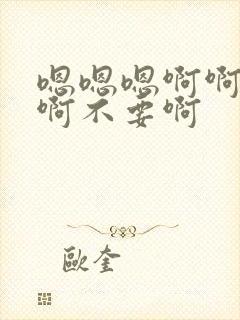 嗯嗯嗯啊啊
啊不要啊
歐奎